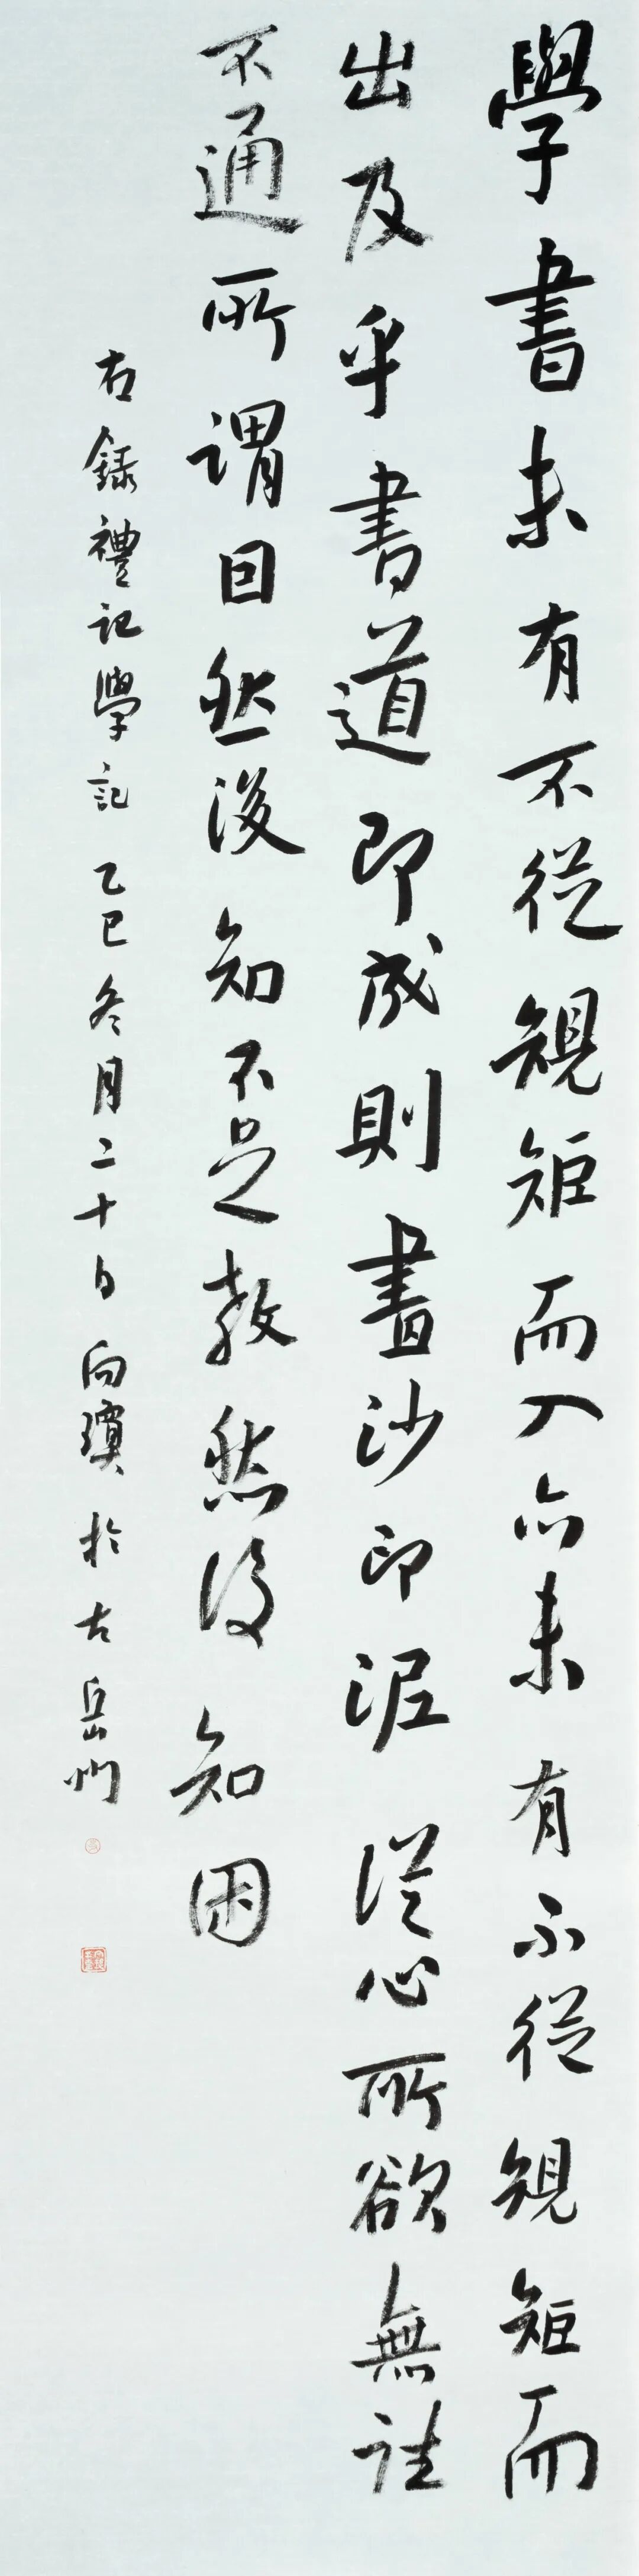 學書未有不從規矩而入亦未有不從規矩而
出及乎書道即成則畫沙印泥從心所欲無往
不通所謂因然後知不足教然後知困
右錄禮記學記乙巳冬月二十日向瓊於古岳州